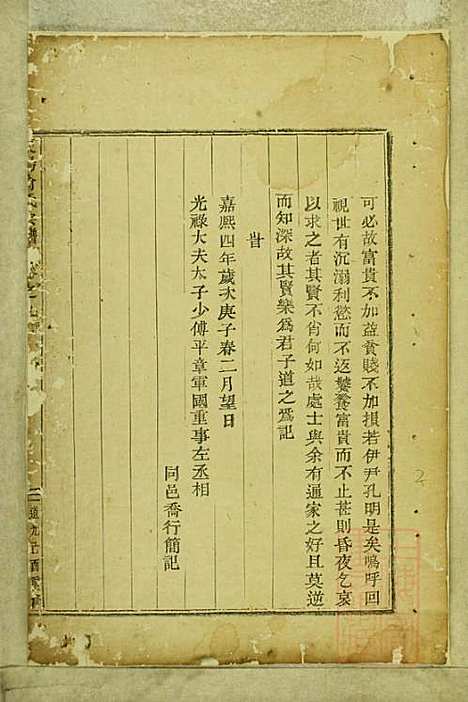 可必故富貴不加益貧賤不加損若伊尹孔明是矣嗚呼回
視世有沉溺利慾而不返饕餮富貴而不止甚則昏夜乞哀
以求之者其賢不肖何如哉處士與余有通家之好且莫逆
而知深故其賢樂爲君子道之爲記
旹
嘉熙四年歲次庚子春二月望日
光祿大夫太子少傅平章軍國重事左丞相
同邑喬行簡記
2